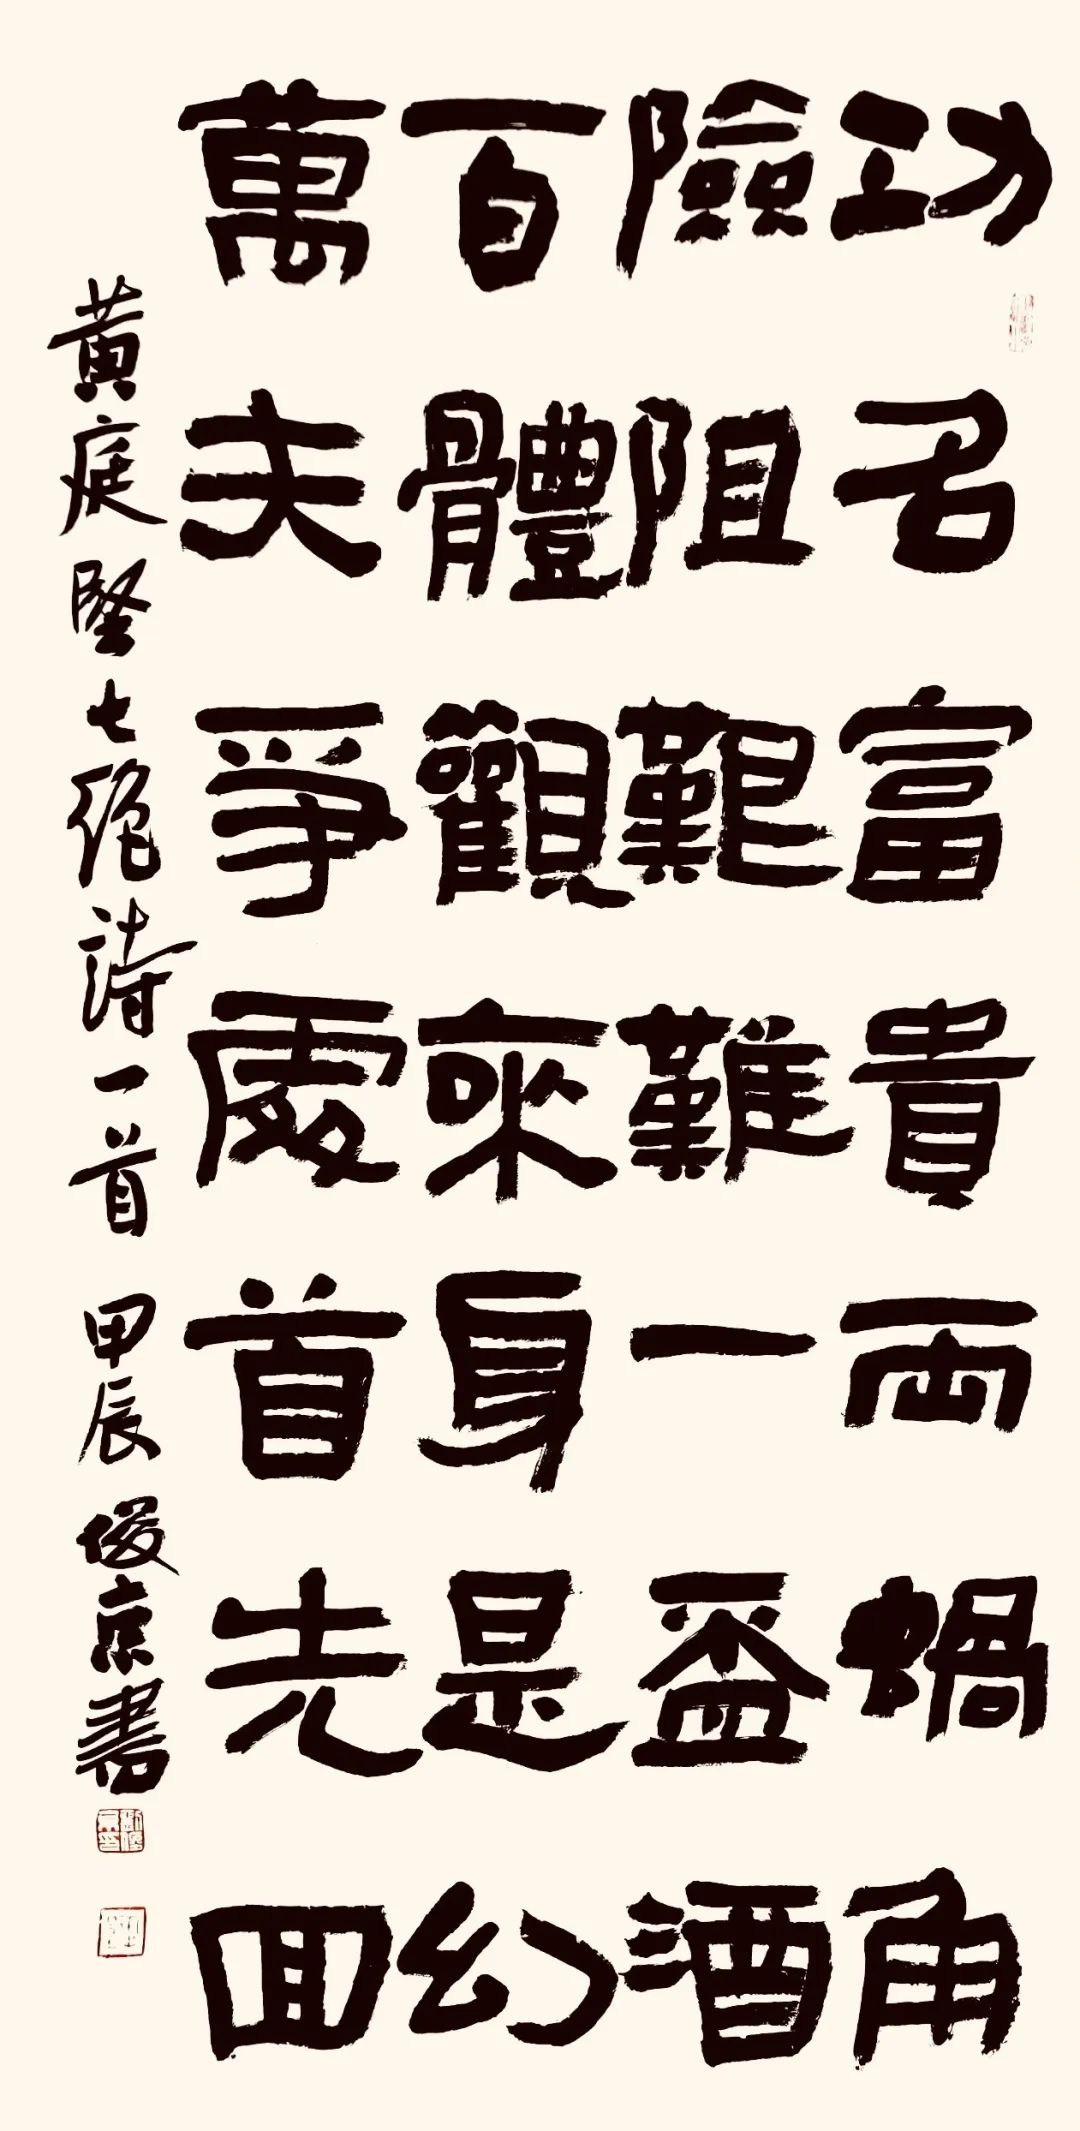 功名富貴兩蝸角
險阻艱難一盃酒
百體觀來身是幻
萬夫爭處首先回
黃庭堅七絕詩一首 甲辰 俊京書